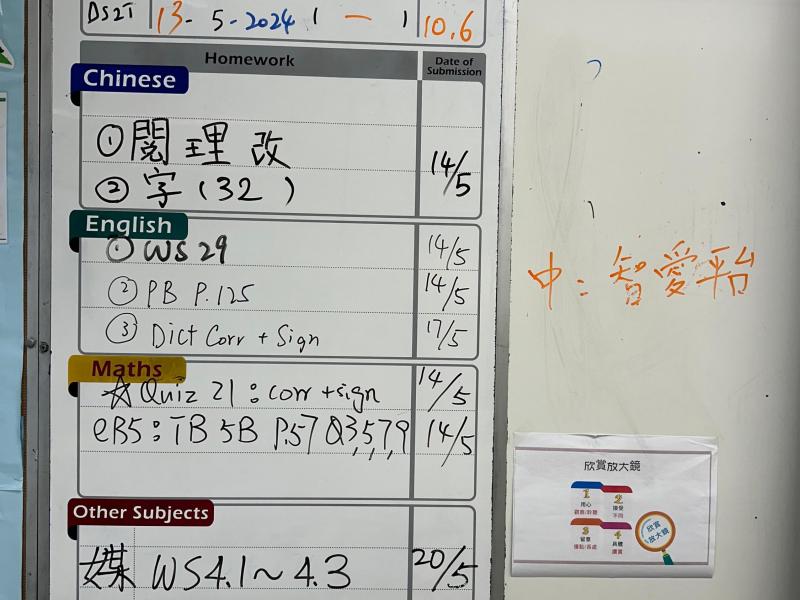 DS2T 13-5-2024 1 — 1 10.6
Homework Date of Submission
Chinese
① 閱理改
② 字(32) 14/5
English
① WS 29 14/5
② PB P.125 14/5
③ Dict Corr + Sign 17/5
Maths
☆ Quiz 21: corr + sign 14/5
eB5: TB 5B P.57 Q3,5,7,9 14/5
Other Subjects
媒 WS4.1~4.3 20/5
中: 智愛平台
欣賞放大鏡
1 2
用心 接受
不同
3 4
留意 具體
優點/長處 讚賞
欣賞
放大鏡